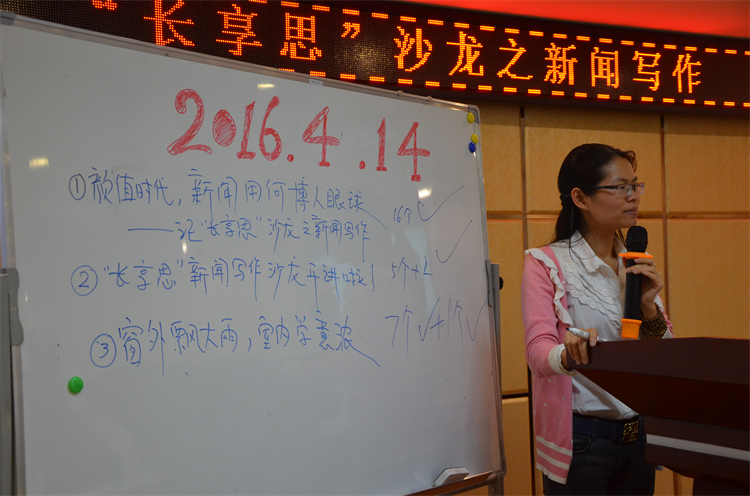 “长享思”沙龙之新闻写作
2016.4.14
①颜值时代，新闻用何博人眼球
——记“长享思”沙龙之新闻写作
16个✓
②“长享思”新闻写作沙龙开讲啦！
5个+2
③窗外飘大雨，室内学意浓
7个✓+1个✓